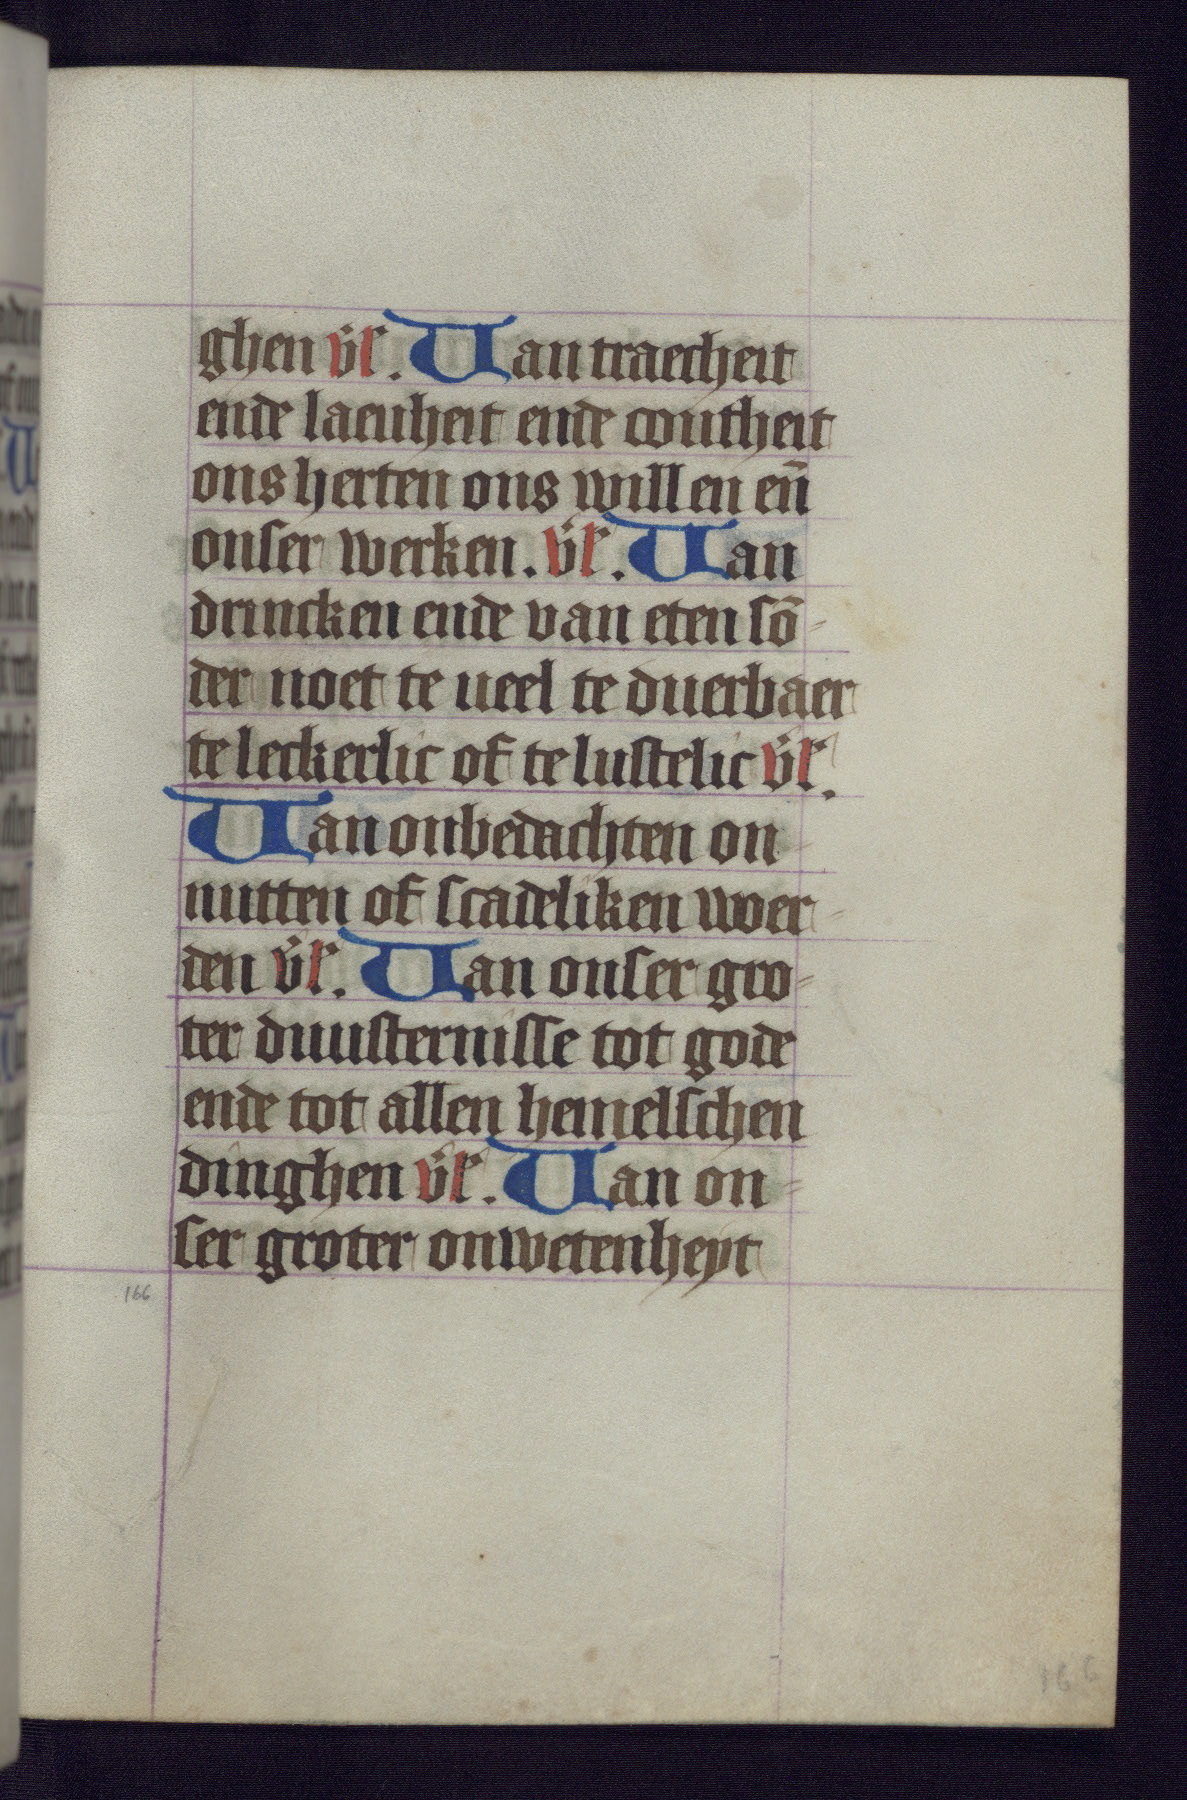 ghen v̄l. Van traecheit
ende laeuheit ende coutheit
ons herten ons willen en̄
onser werken. v̄l. Van
drincken ende van eten sō-
der noet te ueel te duerbaer
te leckerlic of te lustelic v̄l.
Van onbedachten on
nutten of scadeliken woer-
den v̄l. Van onser gro-
ter duusternisse tot gode
ende tot allen hemelschen
dinghen v̄l. Van on-
ser groter onwetenheyt
166
166